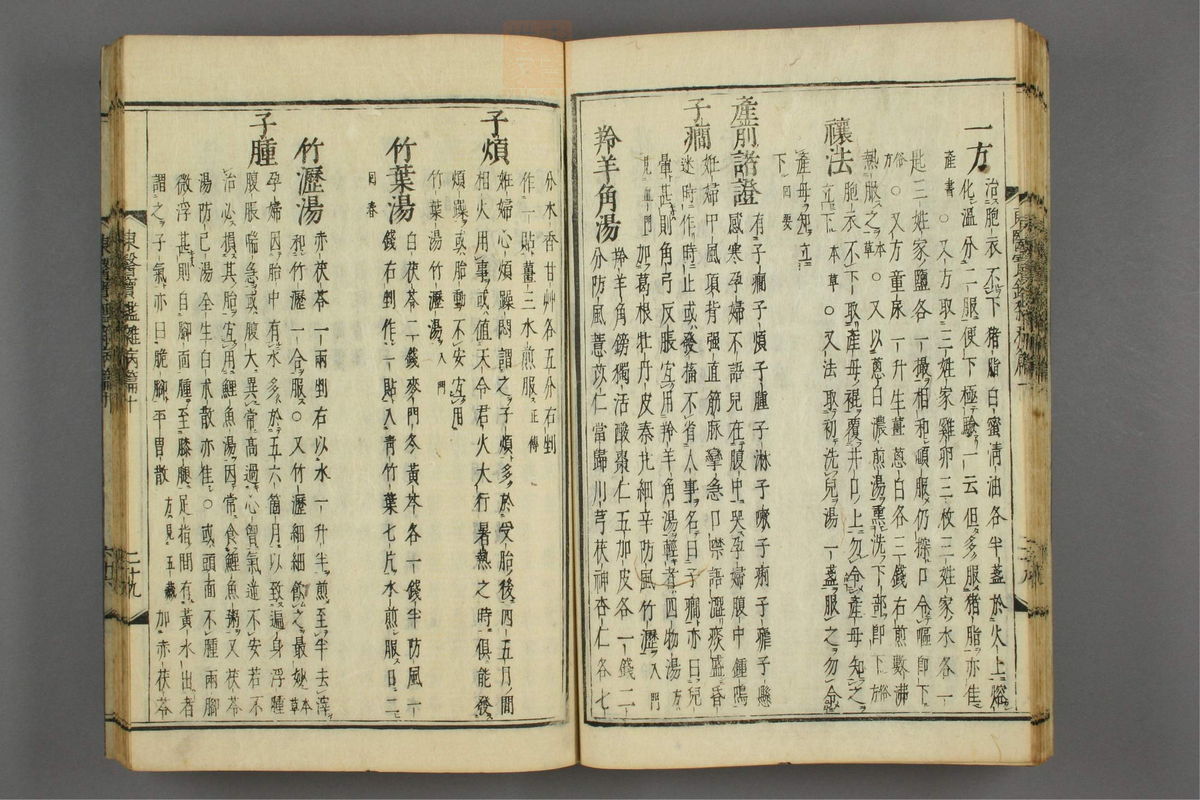 一方 治胞衣不下猪脂白蜜清油各半盞於火上熔
化溫分二服便下極驗一云但多服猪脂亦佳
產書○又方取三姓家雞卵三枚三姓家水各一
匙三姓家鹽各一撮相和頓服仍探口令嘔卽下
俗方○又方童尿一升生薑葱白各三錢右煎數沸
熱服之本草○又以葱白濃煎湯熏洗下部卽下俗方
禳法 胞衣不下取產母裩覆井口上勿令產母知之
立下本草○又法取初洗兒湯一盞服之勿令
產母知立
下回要
產前諸證 有子癎子煩子腫子淋子嗽子痢子瘧子懸
感寒孕婦不語兒在腹中哭孕婦腹中鍾鳴
子癎 姙婦中風項背強直筋脉攣急口噤語澁痰盛昏
迷時作時止或發搐不省人事名曰子癎亦曰兒
暈甚則角弓反張宜用羚羊角湯輕者四物湯方
見血門加葛根牡丹皮秦艽細辛防風竹瀝入門
羚羊角湯 羚羊角鎊獨活酸棗仁五加皮各一錢二
分防風薏苡仁當歸川芎茯神杏仁各七
分木香甘艸各五分右剉
作一貼薑三水煎服正傳
子煩 姙婦心煩躁悶謂之子煩多於受胎後四五月間
相火用事或值天令君火大行暑熱之時俱能發
煩躁或胎動不安宜用
竹葉湯竹瀝湯入門
竹葉湯 白茯苓二錢麥門冬黃芩各一錢半防風一
錢右剉作一貼入靑竹葉七片水煎服日二
回春
竹瀝湯 赤茯苓一兩剉右以水一升半煎至半去滓
和竹瀝一合服○又竹瀝細細飮之最妙本草
子腫 孕婦因胎中有水多於五六箇月以致遍身浮腫
腹脹喘急或腹大異常高過心胷氣逆不安若不
治必損其胎宜用鯉魚湯因常食鯉魚粥又茯苓
湯防己湯全生白朮散亦佳○或頭面不腫兩脚
微浮甚則自脚面腫至膝腿足指間有黃水出者
謂之子氣亦曰脆脚平胃散方見五藏加赤茯苓
東醫寶鑑雜病篇十